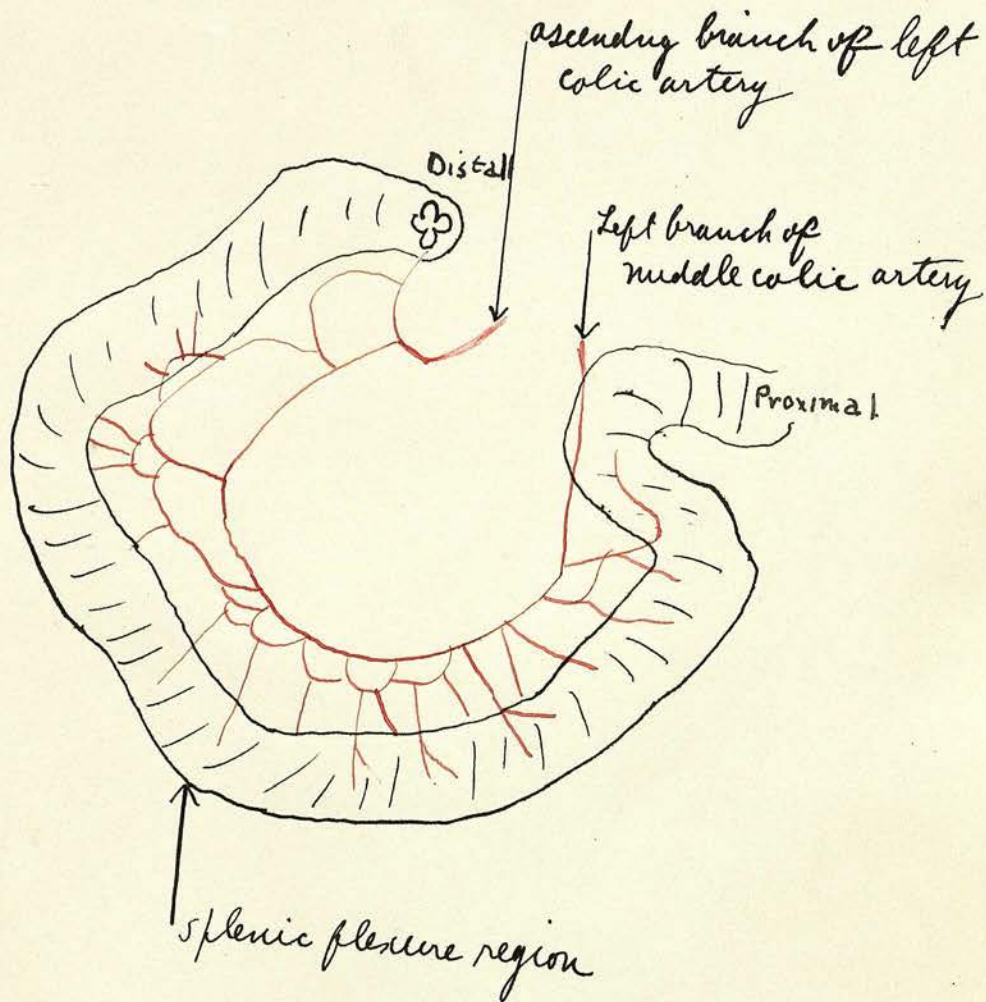 ascendng branch of left
colic artery
Distall
Left branch of
middle colic artery
Proximal
splenic flexure region